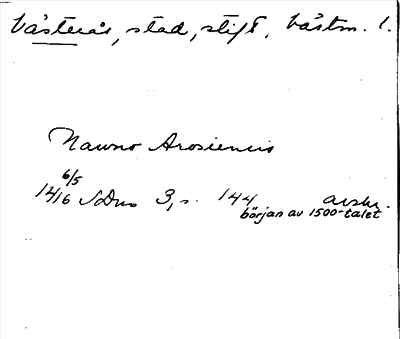 Västerås, stad, stift, Västm. l.
Nauno Arosiensis
6/5
1416 SDns 3, s. 144 avskr.
början av 1500-talet